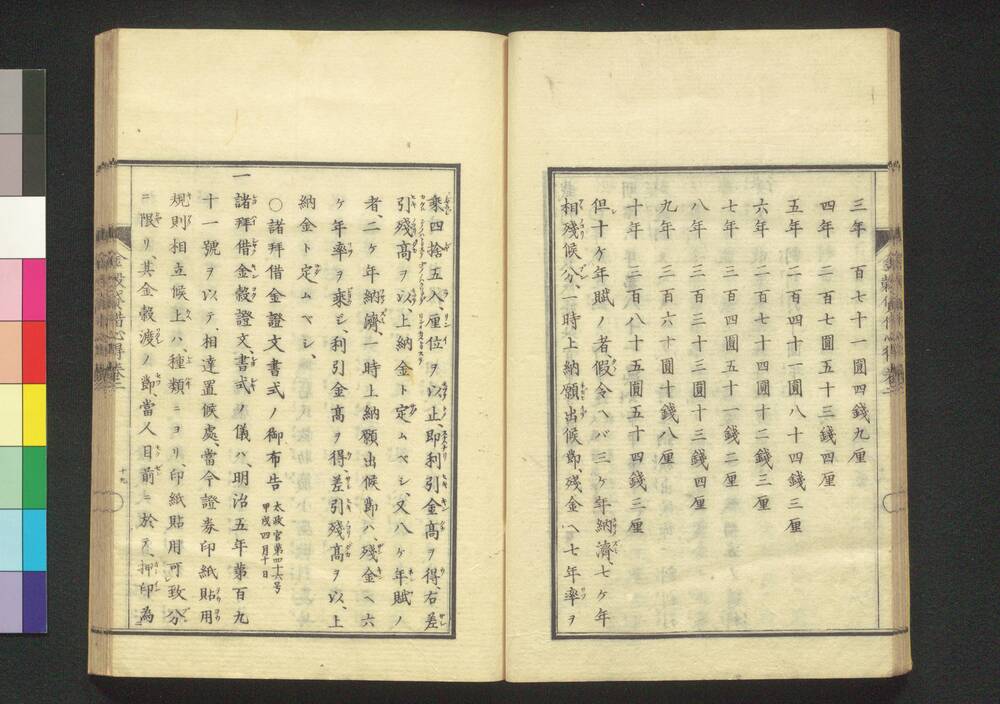 三年　百七十一圓四錢九厘
四年　二百七圓五十三錢四厘
五年　二百四十一圓八十四錢三厘
六年　二百七十四圓十二錢三厘
七年　三百四圓五十一錢二厘
八年　三百三十三圓十三錢四厘
九年　三百六十圓十錢八厘
十年　三百八十五圓五十四錢三厘
但十ケ年賦ノ者、假令ヘバ三ケ年納濟、七ケ年
相殘候分、一時上納願出候節、殘金ヘ七年率ヲ
乘四捨五入厘位ヲ以止、即利引金高ヲ得右差
引殘高ヲ以、上納金ト定ムベシ、又八ケ年賦ノ
者、二ケ年納濟、一時上納願出候節ハ、殘金ヘ六
ケ年率ヲ乘シ、利引金高ヲ得差引殘高ヲ以、上
納金ト定ムベシ、
○諸拜借金證文書式ノ御布告 太政官第四十六号 甲戌四月十日
一諸拜借金穀證文書式ノ儀ハ、明治五年第百九
十一號ヲ以テ、相達置候處、當今證券印紙貼用
規則相立候上ハ、種類ニヨリ、印紙貼用可致分
ニ限リ、其金穀渡ノ節、當人目前ニ於テ、押印為
金穀貸借心得卷二
十九